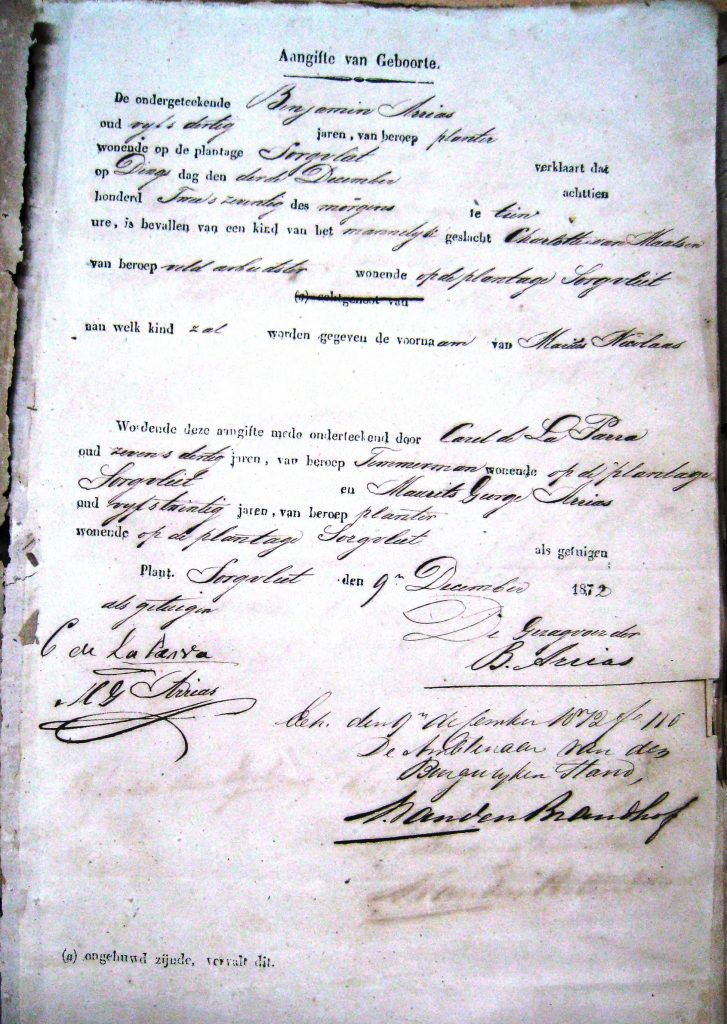 Aangifte van Geboorte.
De ondergeteekende Benjamin Arrias
oud vyf & dertig jaren, van beroep planter
wonende op de plantage Sorgvliet verklaart dat
op Dings dag den derde December achttien
honderd Twee & zeventig des morgens te tien
ure, is bevallen van een kind van het mannelyk geslacht Charlotte van Maalsen
van beroep veld arbeidster wonende op de plantage Sorgvliet
(a) echtgenoot van
aan welk kind zal worden gegeven de voornaam van Maurits Nicolaas
Wordende deze aangifte mede onderteekend door Carel de La Parra
oud zeven & dertig jaren, van beroep Timmerman wonende op de plantage
Sorgvliet en Maurits George Arrias
oud vyf & twintig jaren, van beroep planter
wonende op de plantage Sorgvliet als getuigen
Plant. Sorgvliet den 9n December 1872
als getuigen De Gezagvoerder
C de La Parra B. Arrias
M G Arrias
den 9n december 1872 No 110
De Ambtenaar van den
Burgerlyken Stand,
van den Brandhof
(a) ongehuwd zijnde, vervalt dit.